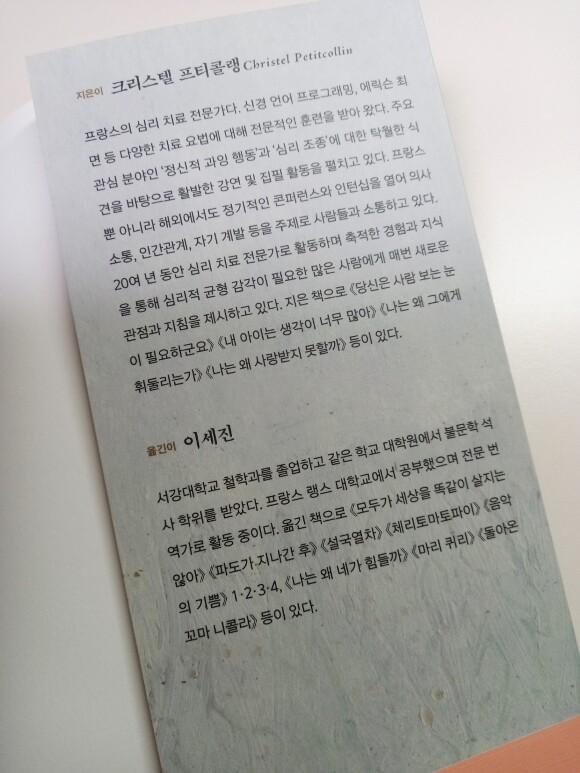 지은이 크리스텔 프티콜랭 Christel Petitcollin
프랑스의 심리 치료 전문가다. 신경 언어 프로그래밍, 에릭슨 최
면 등 다양한 치료 요법에 대해 전문적인 훈련을 받아 왔다. 주요
관심 분야인 ‘정신적 과잉 행동’과 ‘심리 조종’에 대한 탁월한 식
견을 바탕으로 활발한 강연 및 집필 활동을 펼치고 있다. 프랑스
뿐 아니라 해외에서도 정기적인 콘퍼런스와 인턴십을 열어 의사
소통, 인간관계, 자기 계발 등을 주제로 사람들과 소통하고 있다.
20여 년 동안 심리 치료 전문가로 활동하며 축적한 경험과 지식
을 통해 심리적 균형 감각이 필요한 많은 사람에게 매번 새로운
관점과 지침을 제시하고 있다. 지은 책으로 《당신은 사람 보는 눈
이 필요하군요》 《내 아이는 생각이 너무 많아》 《나는 왜 그에게
휘둘리는가》 《나는 왜 사랑받지 못할까》 등이 있다.
옮긴이 이세진
서강대학교 철학과를 졸업하고 같은 학교 대학원에서 불문학 석
사 학위를 받았다. 프랑스 랭스 대학교에서 공부했으며 전문 번
역가로 활동 중이다. 옮긴 책으로 《모두가 세상을 똑같이 살지는
않아》 《파도가 지나간 후》 《설국열차》 《체리토마토파이》 《음악
의 기쁨》 1·2·3·4, 《나는 왜 네가 힘들까》 《마리 퀴리》 《돌아온
꼬마 니콜라》 등이 있다.